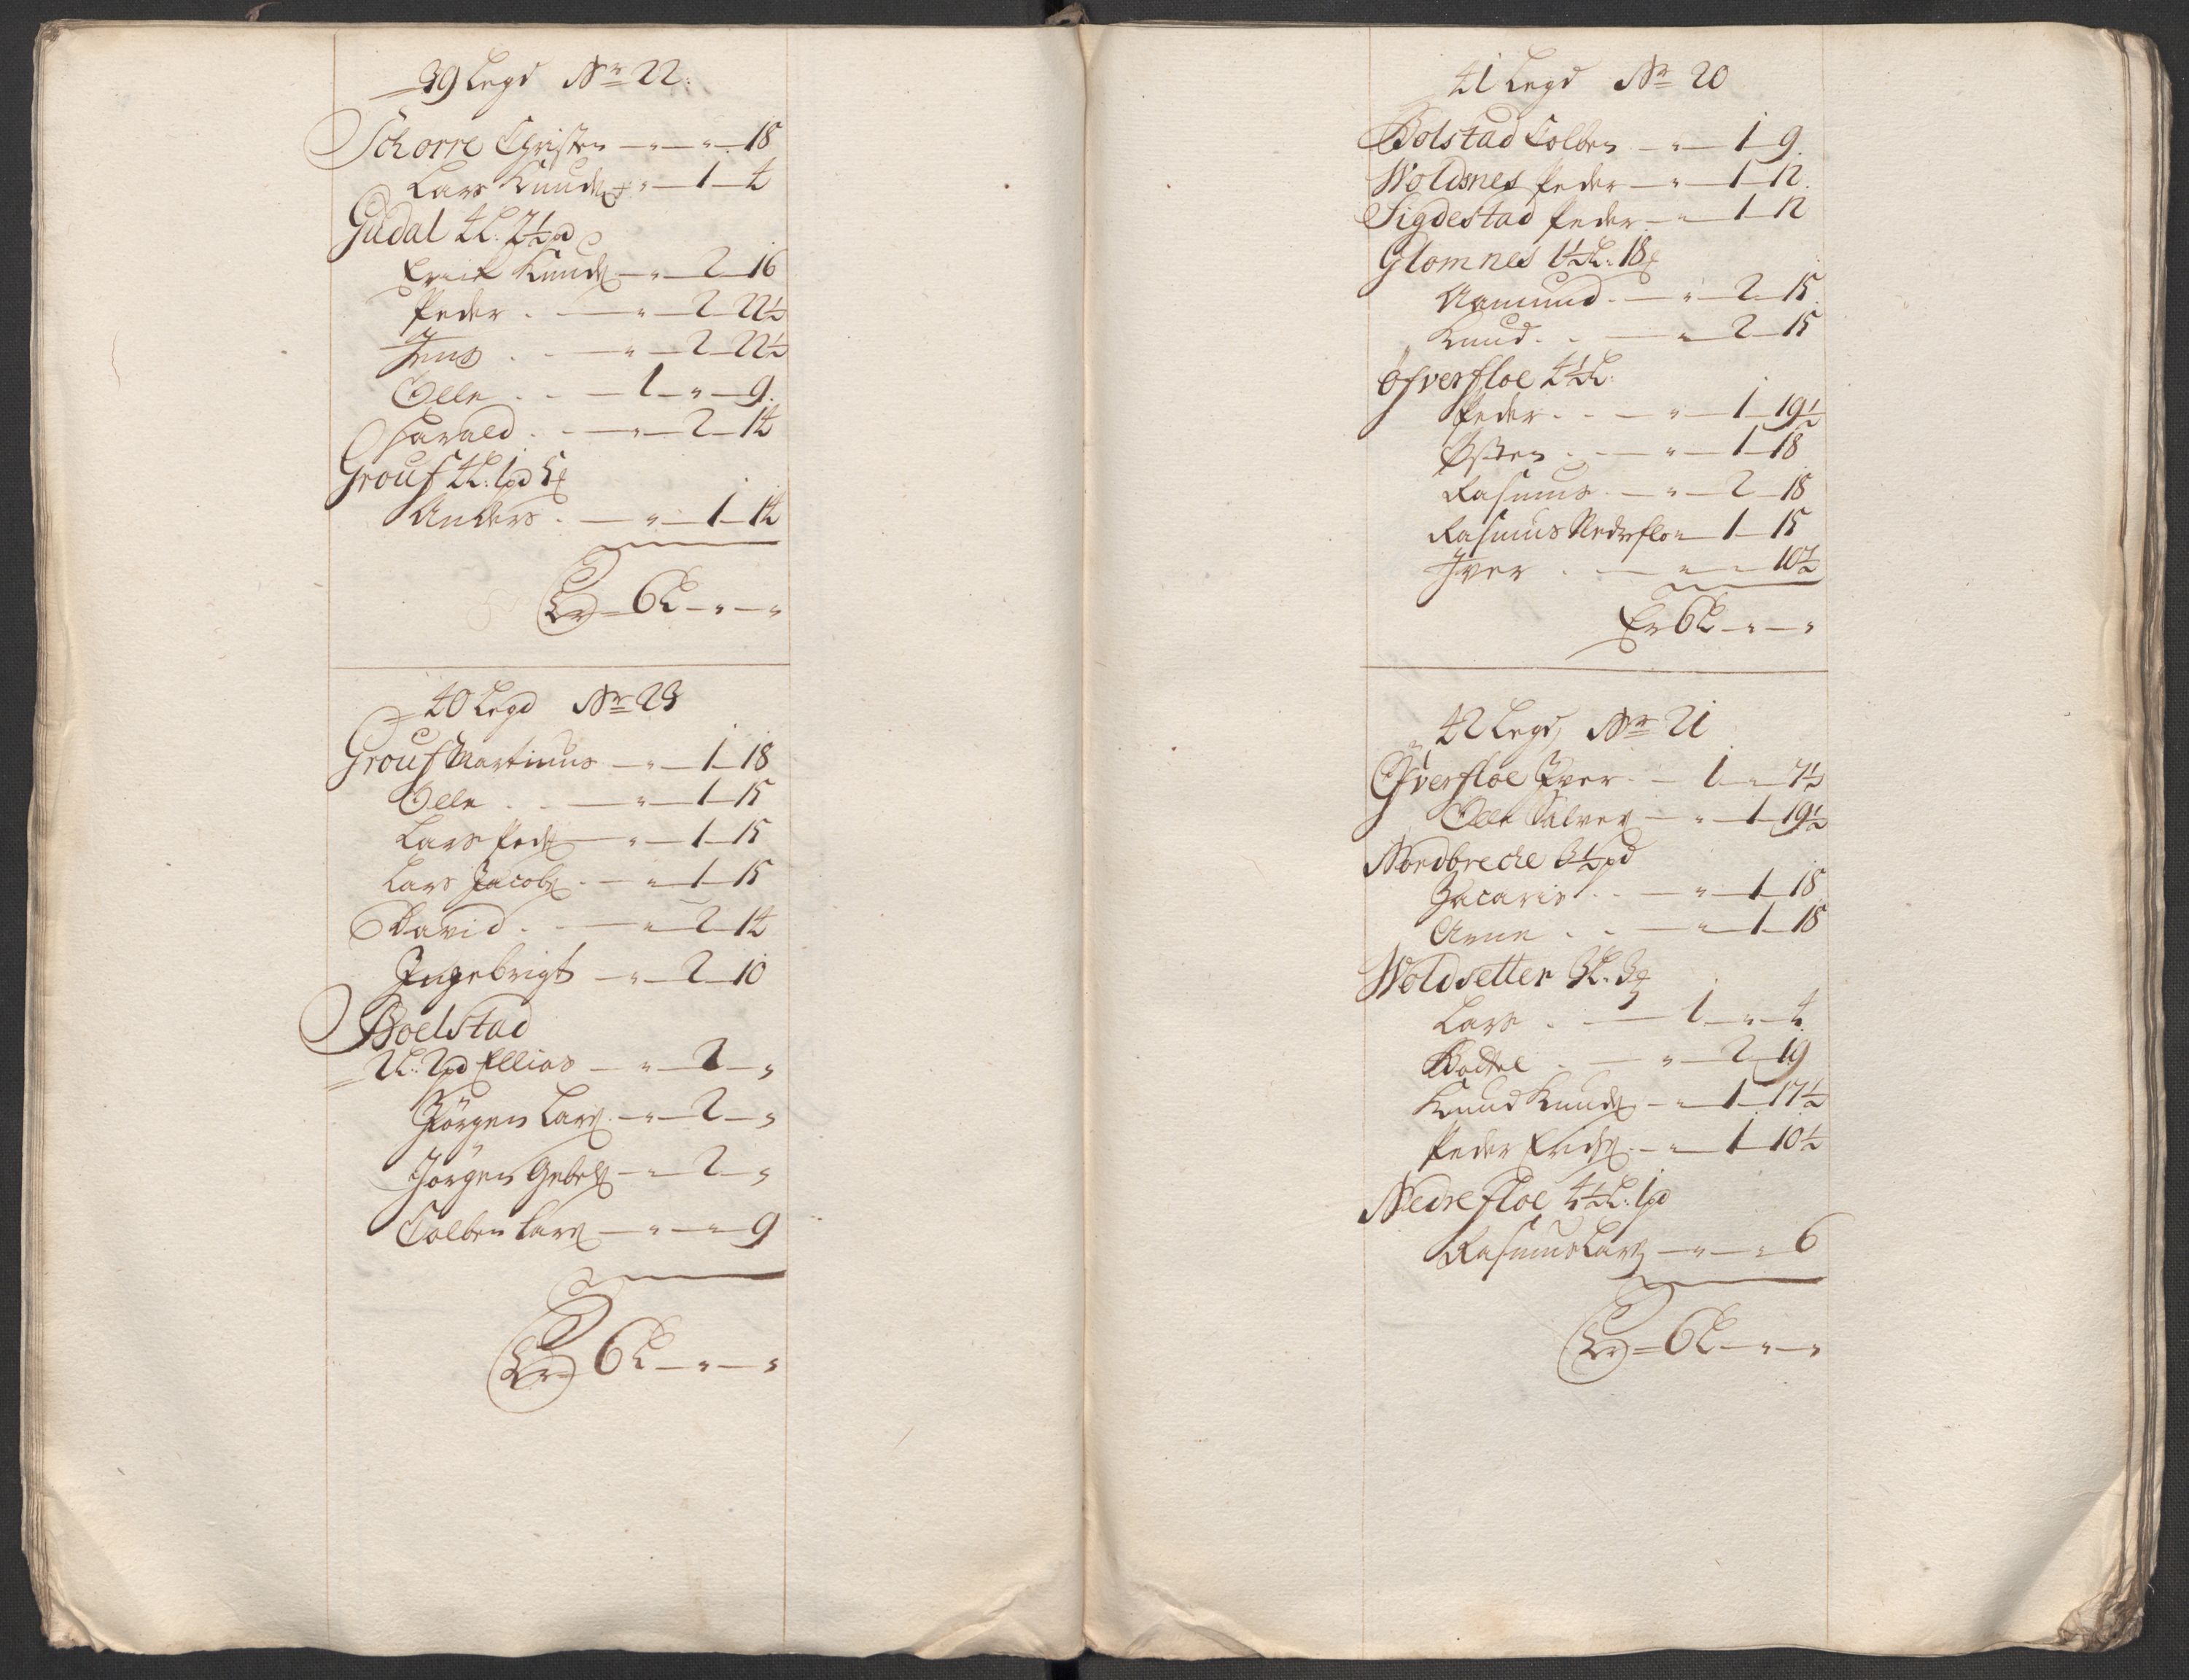 39 Legd Nr 22:
Schorre Christen — " — " — 18
Lars Knuds: " — 1 — 4
Gudal 4 L: 2½ pd
Erick Knuds — " — 2 — 16
Peder . — " — 2 — 22½
Jens . . — " — 2 — 22½
Olle . . — 1 — " — 9.
Harald . . — " — 2 — 14
Grouf 4 L: 1 pd 5
Anders . — " — 1 — 14
Er = 6 L — " — "
40 Legd Nr 23
Grouf Martinus — " — 1 — 18
Olle . . — " — 1 — 15
Lars Peds — " — 1 — 15
Lars Jacobs . — " — 1 — 15
David . . — " — 2 — 14
Ingebrigt — " — 2 — 10
Boelstad
2 L: 2 pd Ellias — " — 2 — "
Jörgen Lars. — " — 2 — "
Jörgen Gabels — " — 2 — "
Colben Lars — " — " — 9
Er = 6 L — " — "
41 Legd Nr 20
Bolstad Colben — " — 1 — 9.
Woldsnes Peder — " — 1 — 12.
Sigdestad Peder — " — 1 — 12
Glomnes 1½ L: 18
Aamund . — " — 2 — 15.
Knud . . — " — 2 — 15
Öfverfloe 4½ L:
Peder . . — " — 1 — 19½
Østen . . — " — 1 — 18
Rasmus . — " — 2 — 18
Rasmus Nedrefloe — 1 — 15
Iver . — " — " — 10½
Er 6 L — " — "
42 Legd, Nr 21
Öfverfloe Iver . — 1 — " — 7½
Olle Salves — " — 1 — 19½
Nordbreche 3½ pd
Zacaris . . — " — 1 — 18
Arne . . — " — 1 — 18
Woldsetter 3 L: 3
Lars . . — 1 — " — 4.
Bottel . — " — 2 — 19
Knud Knuds — " — 1 — 17½
Peder Erichs . — " — 1 — 10½
Nedrefloe 4½ L: 1 pd
Rasmus Lars — " — " — 6
Er = 6 L — " — "